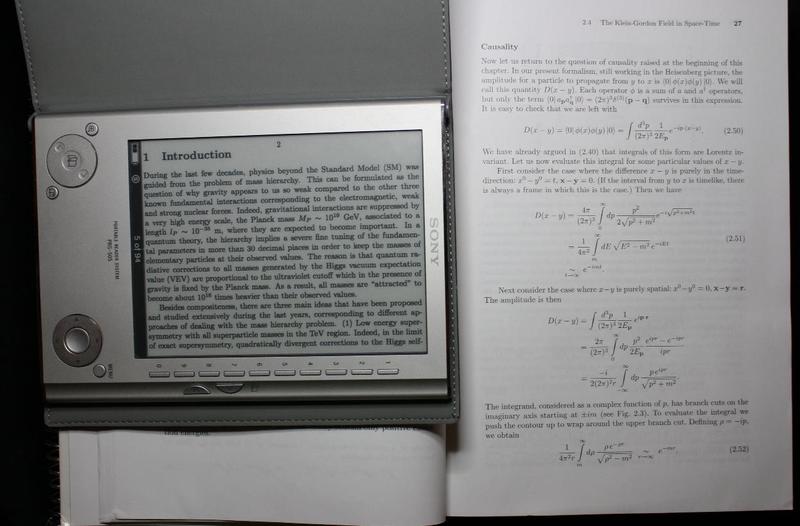 2
1 Introduction
During the last few decades, physics beyond the Standard Model (SM) was
guided from the problem of mass hierarchy. This can be formulated as the
question of why gravity appears to us so weak compared to the other three
known fundamental interactions corresponding to the electromagnetic, weak
and strong nuclear forces. Indeed, gravitational interactions are suppressed by
a very high energy scale, the Planck mass M_P ∼ 10^19 GeV, associated to a
length l_P ∼ 10^−35 m, where they are expected to become important. In a
quantum theory, the hierarchy implies a severe fine tuning of the fundamen-
tal parameters in more than 30 decimal places in order to keep the masses of
elementary particles at their observed values. The reason is that quantum ra-
diative corrections to all masses generated by the Higgs vacuum expectation
value (VEV) are proportional to the ultraviolet cutoff which in the presence of
gravity is fixed by the Planck mass. As a result, all masses are “attracted” to
become about 10^16 times heavier than their observed values.
Besides compositeness, there are three main ideas that have been proposed
and studied extensively during the last years, corresponding to different ap-
proaches of dealing with the mass hierarchy problem. (1) Low energy super-
symmetry with all superparticle masses in the TeV region. Indeed, in the limit
of exact supersymmetry, quadratically divergent corrections to the Higgs self-
5 of 94
SONY
PORTABLE READER SYSTEM
PRS-505
MENU
0 9 8 7 6 5 4 3 2 1
2.4 The Klein-Gordon Field in Space-Time 27
Causality
Now let us return to the question of causality raised at the beginning of this
chapter. In our present formalism, still working in the Heisenberg picture, the
amplitude for a particle to propagate from y to x is ⟨0| φ(x)φ(y) |0⟩. We will
call this quantity D(x − y). Each operator φ is a sum of a and a† operators,
but only the term ⟨0| a_p a†_q |0⟩ = (2π)^3 δ^(3)(p − q) survives in this expression.
It is easy to check that we are left with
D(x − y) = ⟨0| φ(x)φ(y) |0⟩ = ∫ d^3p/(2π)^3 1/2E_p e^−ip·(x−y). (2.50)
We have already argued in (2.40) that integrals of this form are Lorentz in-
variant. Let us now evaluate this integral for some particular values of x − y.
First consider the case where the difference x − y is purely in the time-
direction: x^0 − y^0 = t, x − y = 0. (If the interval from y to x is timelike, there
is always a frame in which this is the case.) Then we have
D(x − y) = 4π/(2π)^3 ∫_0^∞ dp p^2/2√(p^2+m^2) e^−i√(p^2+m^2)t
= 1/4π^2 ∫_m^∞ dE √(E^2 − m^2) e^−iEt (2.51)
∼_{t→∞} e^−imt.
Next consider the case where x − y is purely spatial: x^0 − y^0 = 0, x − y = r.
The amplitude is then
D(x − y) = ∫ d^3p/(2π)^3 1/2E_p e^ip·r
= 2π/(2π)^3 ∫_0^∞ dp p^2/2E_p (e^ipr − e^−ipr)/ipr
= −i/2(2π)^2r ∫_−∞^∞ dp p e^ipr/√(p^2 + m^2).
The integrand, considered as a complex function of p, has branch cuts on the
imaginary axis starting at ±im (see Fig. 2.3). To evaluate the integral we
push the contour up to wrap around the upper branch cut. Defining ρ = −ip,
we obtain
1/4π^2r ∫_m^∞ dρ ρ e^−ρr/√(ρ^2 − m^2) ∼_{r→∞} e^−mr. (2.52)
tion energies.